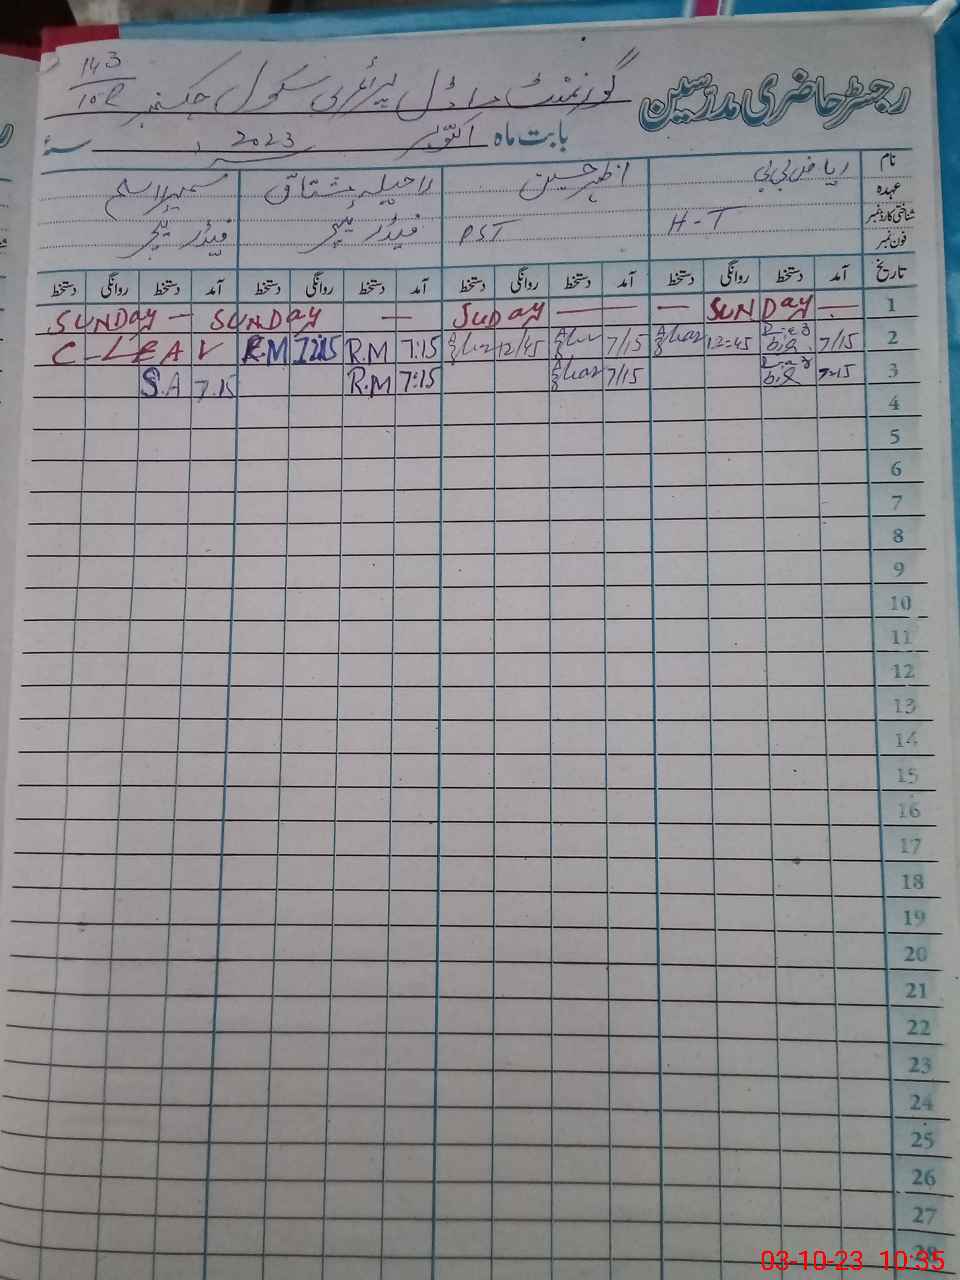 رجسٹر حاضری مدرسین گورنمنٹ ماڈل پرائمری سکول چک نمبر 143/10R
بابت ماہ اکتوبر 2023 سنہ
نام ریاض بی بی اظہر حسین راحیلہ مشتاق سمیرا اسلم
عہدہ
شناختی کارڈ نمبر H-T PST فیڈر ٹیچر فیڈر ٹیچر
فون نمبر
تاریخ آمد دستخط روانگی دستخط آمد دستخط روانگی دستخط آمد دستخط روانگی دستخط آمد دستخط روانگی دستخط
SUNDay — SUNDay — SUDay — — — SUNDay — 1
C-LEAV R.M 12:15 R.M 7:15 Azhar 12/45 Azhar 7/15 Azhar 12=45 7/15 2
S.A 7.15 R.M 7:15 Azhar 7/15 7=15 3
4
5
6
7
8
9
10
11
12
13
14
15
16
17
18
19
20
21
22
23
24
25
26
27
28
03-10-23 10:35